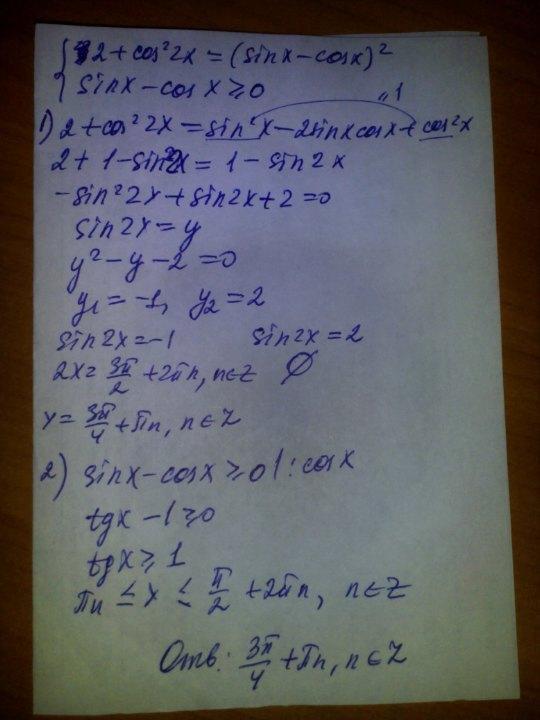 { 2 + cos²2x = (sinx - cosx)²
{ sinx - cosx ≥ 0
"1
1) 2 + cos²2x = sin²x - 2sinxcosx + cos²x
2 + 1 - sin²2x = 1 - sin2x
-sin²2x + sin2x + 2 = 0
sin2x = y
y² - y - 2 = 0
y₁ = -1, y₂ = 2
sin2x = -1 sin2x = 2
2x = 3π/2 + 2πn, n∈Z ∅
x = 3π/4 + πn, n∈Z
2) sinx - cosx ≥ 0 | : cosx
tgx - 1 ≥ 0
tgx ≥ 1
πn ≤ x ≤ π/2 + 2πn, n∈Z
Отв: 3π/4 + πn, n∈Z